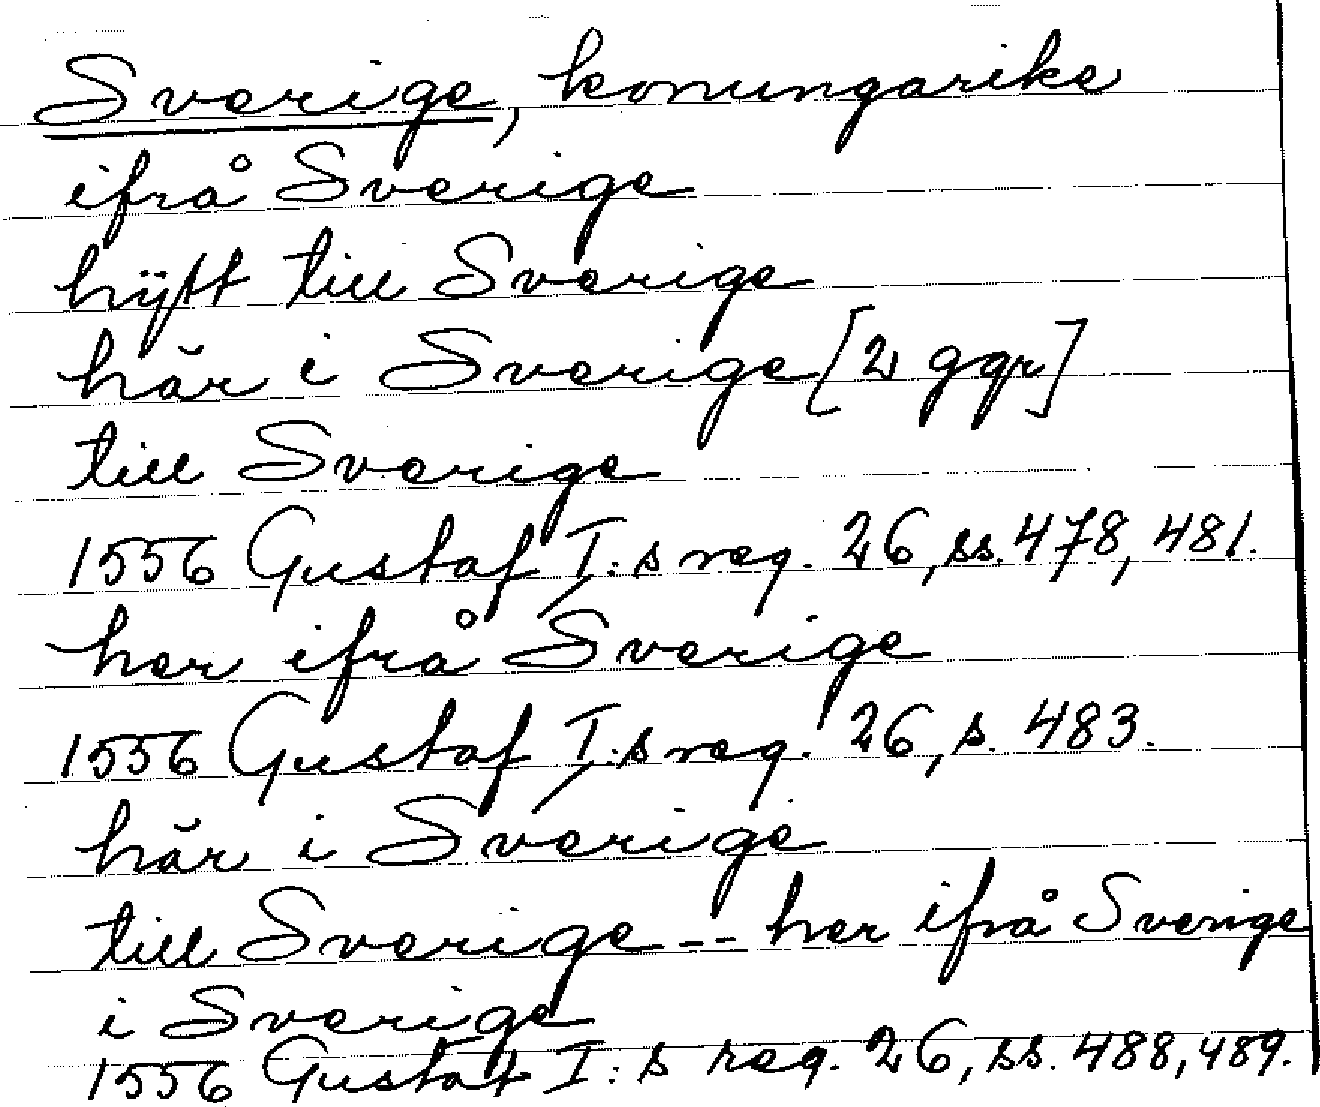 Sverige, konungarike
ifrå Sverige
hÿtt till Sverige
här i Sverige [2 ggr]
till Sverige
1556 Gustaf I:s reg. 26, ss. 478, 481.
her ifrå Sverige
1556 Gustaf I:s reg. 26, s. 483.
här i Sverige
till Sverige -- her ifrå Sverige
i Sverige
1556 Gustaf I:s reg. 26, ss. 488, 489.